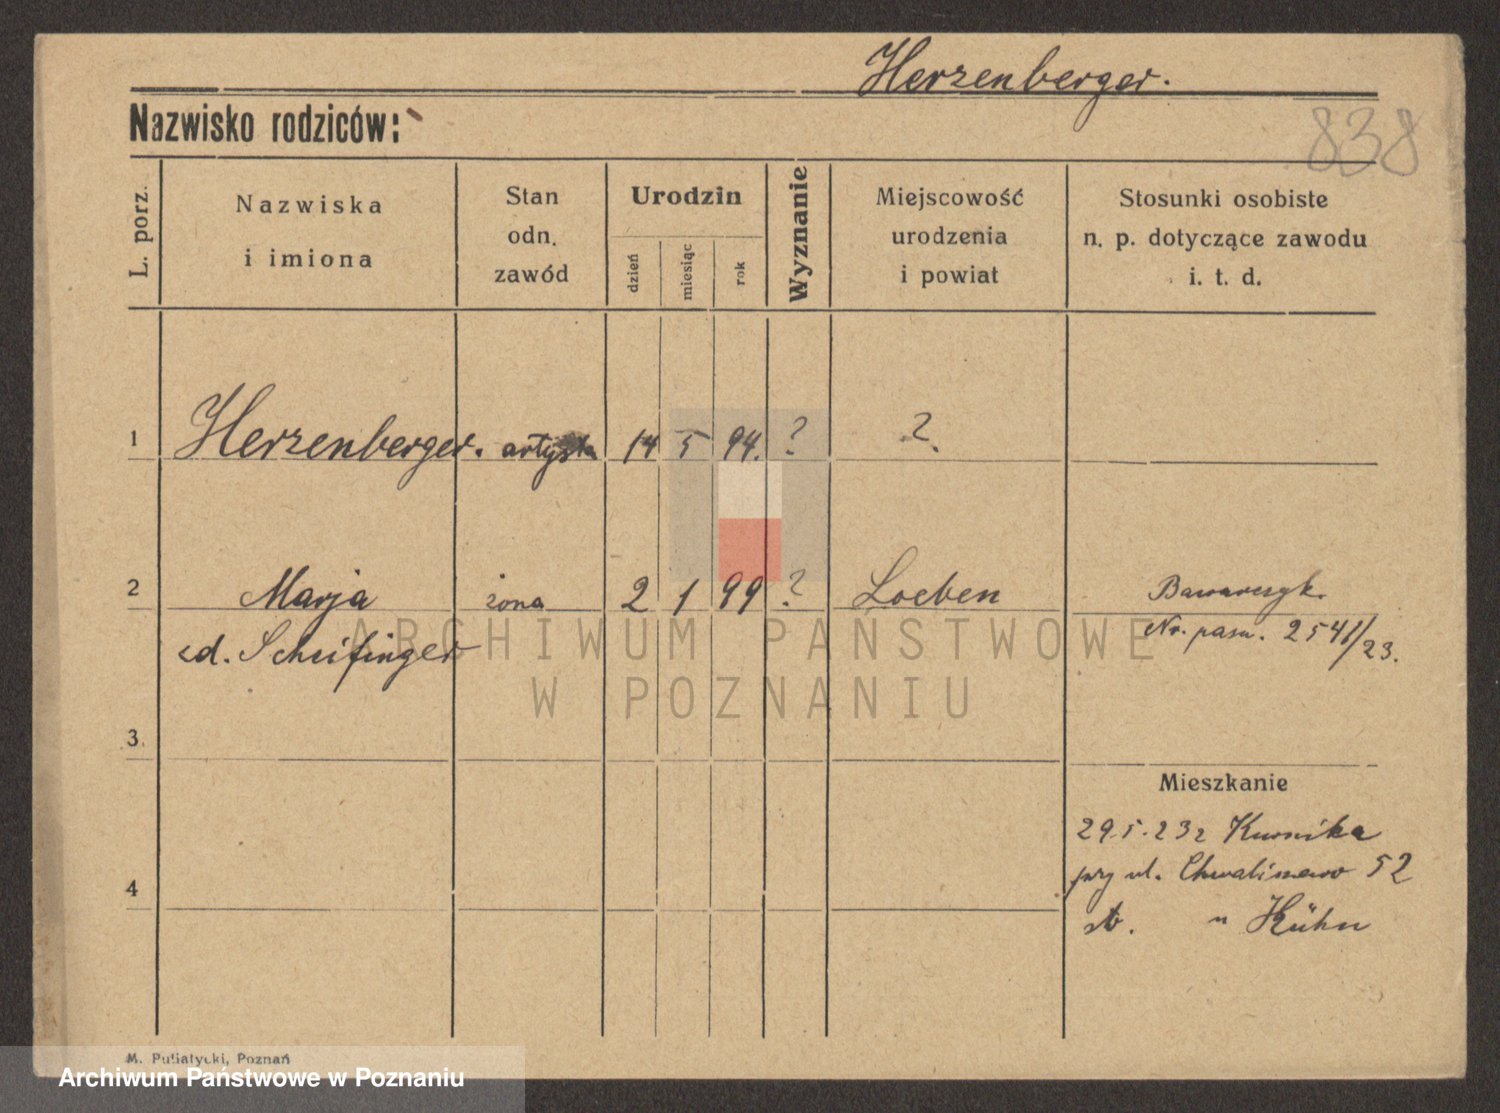 Herzenberger.
Nazwisko rodziców:
838
L. porz.
Nazwiska
i imiona
Stan
odn.
zawód
Urodzin
dzień
miesiąc
rok
Wyznanie
Miejscowość
urodzenia
i powiat
Stosunki osobiste
n. p. dotyczące zawodu
i. t. d.
1 Herzenberger. artysta 14 5 94. ? ?
2 Marja żona 2 1 99 ? Loeben Bawarczyk.
zd. Scheifinger Nr. pasz. 2541/23.
ARCHIWUM PAŃSTWOWE
W POZNANIU
3.
Mieszkanie
29.5.23 z Kurnika
przy ul. 52
4
st. u Kühn
M. Putiatycki, Poznań
Archiwum Państwowe w Poznaniu